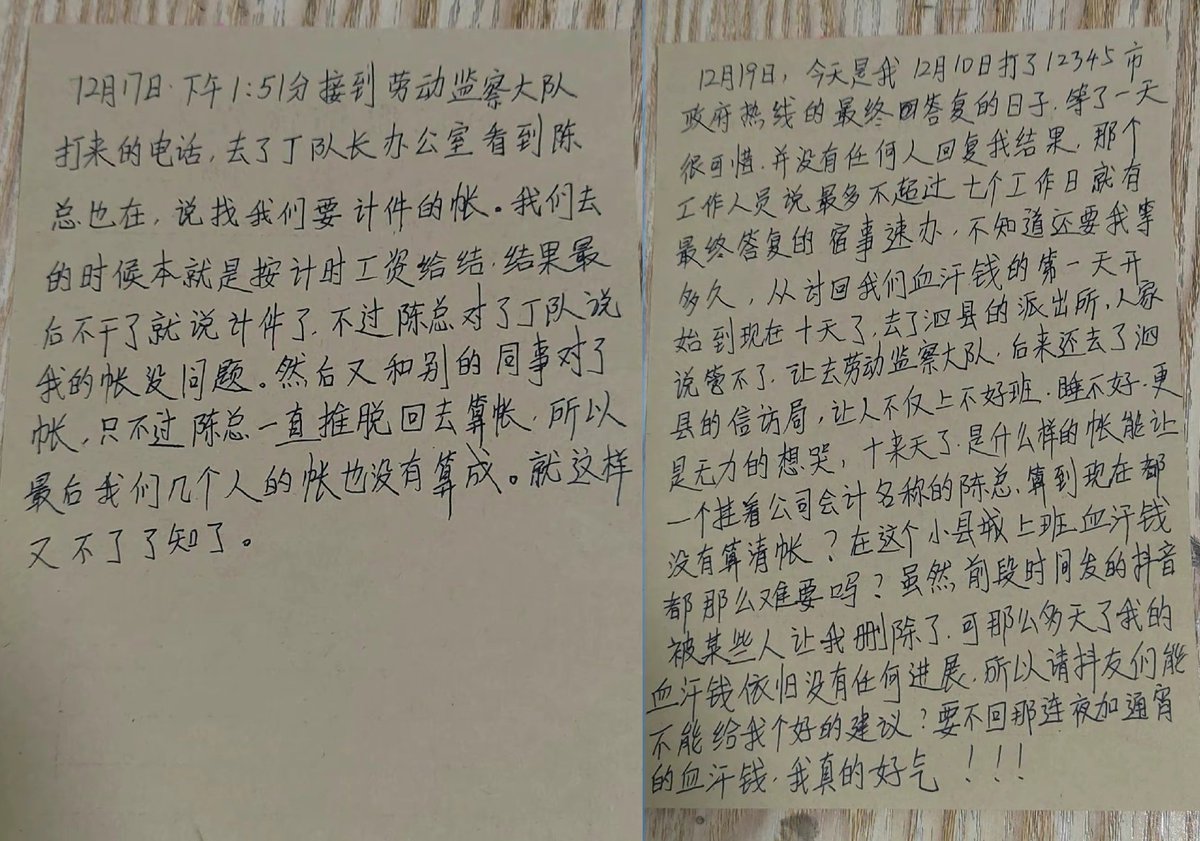 12月17日.下午1:51分接到劳动监察大队
打来的电话,去了丁队长办公室看到陈
总也在,说找我们要计件的帐。我们去
的时候本就是按计时工资给结.结果最
后不干了就说计件了.不过陈总对了丁队说
我的帐没问题。然后又和别的同事对了
帐,只不过陈总一直推脱回去算帐.所以
最后我们几个人的帐也没有算成。就这样
又不了了知了。
12月19日,今天是我12月10日打了12345市
政府热线的最终回答复的日子.等了一天
很可惜.并没有任何人回复我结果,那个
工作人员说最多不超过七个工作日就有
最终答复的宿事速办,不知道还要我等
多久,从讨回我们血汗钱的第一天开
始到现在十天了.去了泗县的派出所,人家
说管不了.让去劳动监察大队,后来还去了泗
县的信访局,让人不仅上不好班.睡不好.更
是无力的想哭,十来天了.是什么样的帐能让
一个挂着公司会计名称的陈总,算到现在都
没有算清帐?在这个小县城上班血汗钱
都那么难要吗?虽然前段时间发的抖音
被某些人让我删除了.可那么多天了我的
血汗钱依归没有任何进展.所以请抖友们能
不能给我个好的建议?要不回那连夜加通宵
的血汗钱.我真的好气!!!